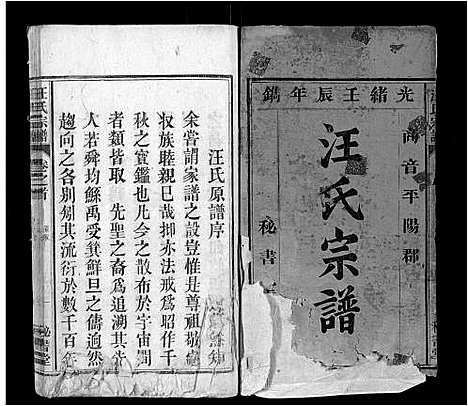 光緒壬辰年鐫
商音平陽郡
汪氏宗譜
秘書
汪氏原譜序
余嘗謂家譜之設豈惟是尊祖敬宗
収族睦親已哉抑亦法戒為昭作千
秋之寶鑑也凡今之散布於宇宙間
者類皆取 先聖之裔為追溯其先
人若舜均鯀禹受箕鮮旦之儔逈然
趨向之各別矧其流衍於數千百年
汪氏宗譜
卷之首